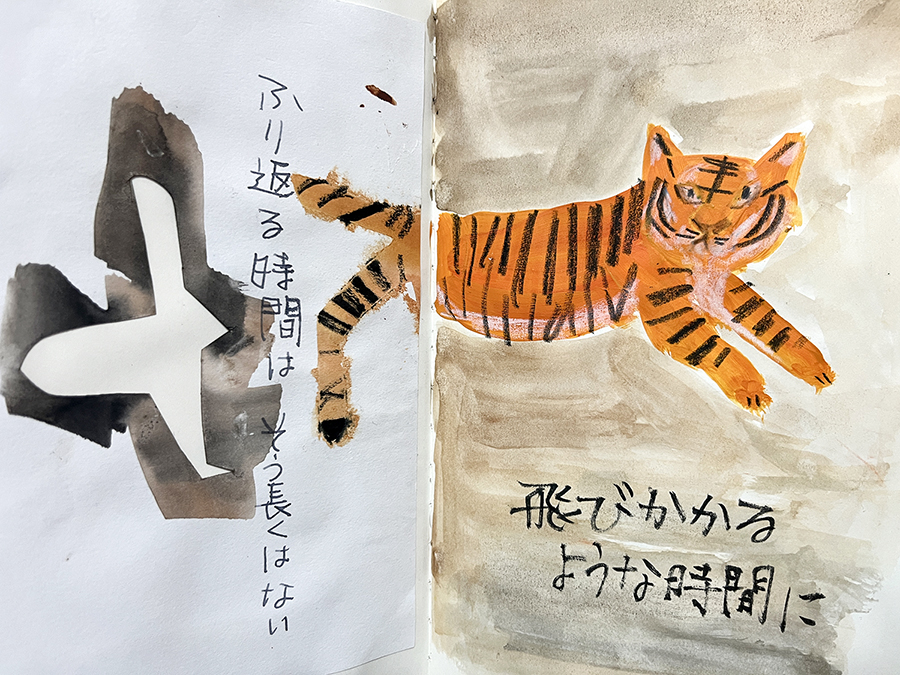 ふり返る時間は そう長くはない
飛びかかる
ような時間に